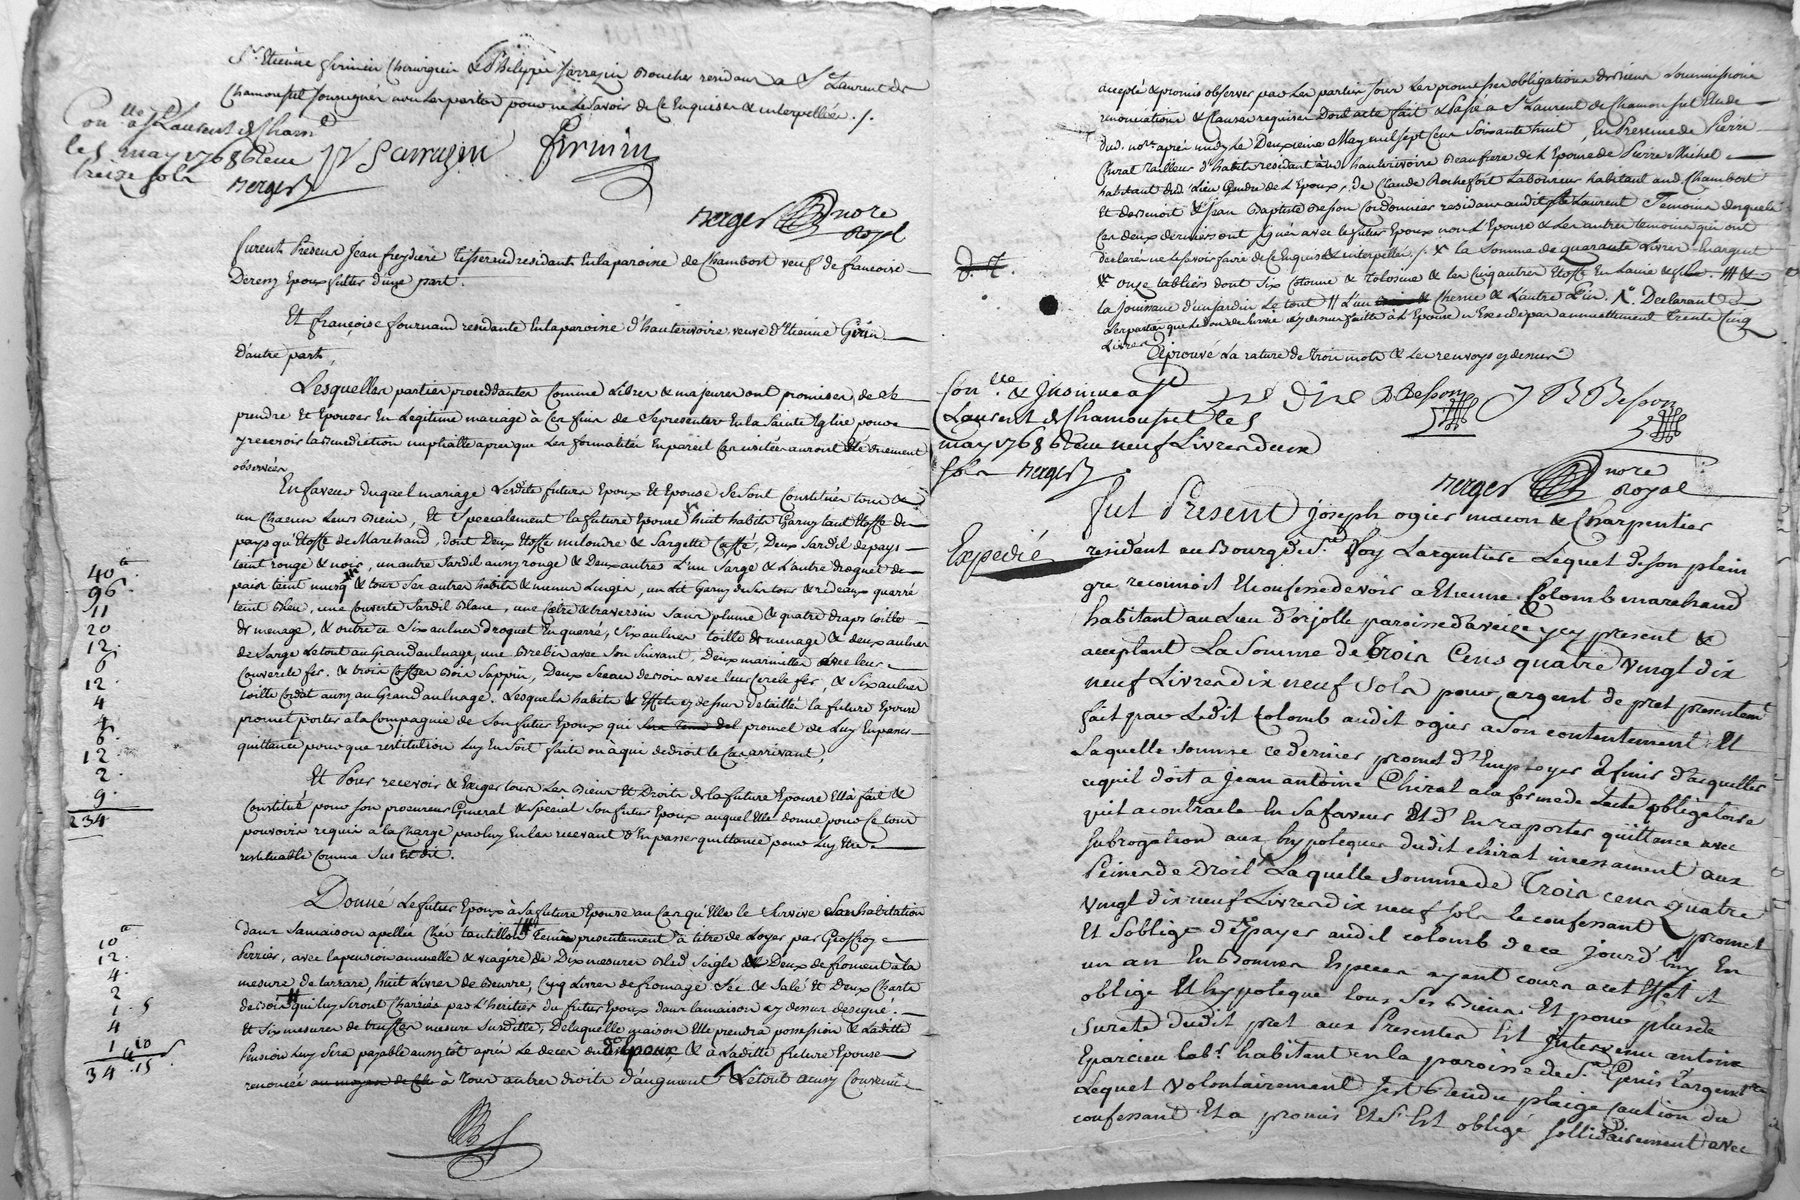 Sr. Etienne firmin Chirurgien & Philippe Sarrazin Boucher residant a St. Laurent de
Chamousset soussignés non les parties pour ne le savoir de ce Enquises & interpellées ./.
Con.lle a St Laurent de Cham.t
le 5 may 1768 Reçu
treize sols
Berger
P Sarrazin firmin
Berger nore
Royl
furent Presens Jean freydiere Tisserand residant En la paroisse de Chambost veuf de françoise
Derezy Epoux futter d'une part.
Et françoise fournand residante En la paroisse d'hauterivoire veuve d'Etienne Girin
D'autre part,
Lesquelles parties procedantes Comme Libres & majeures ont promises de se
prendre Et Epouser En Legitime mariage à ces fins de se presenter En la Sainte Eglise pour
y recevoir la Benediction nuptialle apres que les formalités En pareil Cas usitées auront été düement
observées
En faveur duquel mariage Lesdits futurs Epoux Et Epouse Se sont Constitués tous &
un Chacun Leurs Biens, Et Specialement la future Epouse huit habits Garnis tant Etoffe de
pays qu'Etoffe de Marchand, dont Deux Etoffe miLondre & Sargette Caffé, Deux Sardil de pays
teint rouge & noir, un autre Sardil aussy rouge & Deux autres L'un Sarge & L'autre Droguet de
pais teint musq & tous ses autres habits & menus Linges, un Lit Garny de ses tours & rideaux quarré
teint Bleu, une Couverte Sardil Blanc, une Coêtre & traversin Sans plume & quatre draps toille
de menage, & outre ce Six aulnes droguet En quarré, Six aulnes toille de menage & deux aulnes
de Sarge Le tout au Grand aulnage, une Brebis avec Son Suivant, Deux marmittes avec leurs
Couvercle fer, & trois Coffres Bois Sappin, Deux Seaux de Bois avec leurs Cercle fer, & Six aulnes
toille Cordat aussy au Grand aulnage. Lesquels habits & Effets cy dessus detaillés la future Epouse
promet porter a la Compagnie de Son futur Epoux qui promet de Luy En passer
quittance pour que restitution Luy En Soit faite ou à qui de droit le Cas arrivant,
Et Pour recevoir & Exiger tous Les Biens Et Droits de la future Epouse Elle a fait &
Constitué pour son procureur General & special Son futur Epoux auquel Elle donne pour Ce tout
pouvoir requis a la Charge par luy En les recevant d'En passer quittance pour Luy Etre
restituable Comme Sus Est dit.
Donne Le futur Epoux à Sa future Epouse au Cas qu'Elle le Survive Son habitation
dans Sa maison apellée Chés tautillon Tenüe presentement à titre de Loyer par Geoffroy
Perrier, avec la pension annuelle & viagere de Dix mesures Bled Seigle & Deux de froment à la
mesure de tarrare, huit Livres de Beurre, Cinq Livres de fromage Séc & Salé Et Deux Charts
de Bois # qui luy Seront Chariés par L'heritier du futur Epoux dans la maison cy dessus designé.
Et Six mesures de truffes mesure Susditte, De laquelle maison Elle prendra possession & Laditte
Pension Luy Sera payable aussytôt après Le deces dudit Epoux, & à Laditte future Epouse
renoncée au moyen de Ce à Tous autres droits d'augment & Le tout Ainsy Convenu
40
96
11
20
12
6
12
4
4
6
12
2
9
234
10
12
4
2
1 . 5
4
1 10
34 . 15
accepté & promis observer par Les parties Sous Les promesses obligations de Biens Soumissions
renonciations & Clauses requises Dont acte fait & Passé a St Laurent de Chamousset Etude
dud. nore. après midy Le Deuxieme May mil sept Cens Soixante huit, En Presence de Pierre
Chirat Tailleur d'habits residant à ud. hauterivoire Beaufrere de L'Epouse de Pierre Michel
habitant dud. Lieu Gendre de L'Epoux, De Claude Rochefort Laboureur habitant aud. Chambost
Et de Benoit & Jean Baptiste Besson Cordonniers residans audit St Laurent Temoins desquels
Ces deux derniers ont Signés avec le futur Epoux non L'Epouse & Les autres temoins qui ont
declarés ne le Savoir faire de Ce Enquis & interpellés ./. la Somme de quarante Livres En argent
onze tabliers dont Six Cotonne & Tolosine & les Cinq autres Etoffe En Laine &
la Jouissance d'un Jardin Le tout // L'un Chesne & L'autre Pin. Declarant
Les parties que le Don de Survie cy dessus faitte à L'Epouse n'Excede pas annuellement Trente Cinq
Livres
Aprouvé La rature de Trois mots & Les renvoys cy dessus
Con.lle & Insinué a St
Laurent de Chamousset le 5
may 1768 Reçu neuf Livres deux
sols Berger
B Besson J B Besson
Berger nore
Royal
Expedié
fut Present Joseph ogier macon & Charpentier
resident au Bourg de St. foy Largentiere Lequel de son plein
gre reconnoit Et confesse devoir a Etienne Colomb marchand
habitant au Lieu d'orjolle paroisse d'aveize y cy present &
acceptant La Somme de Trois Cens quatre vingt dix
neuf Livres dix neuf Sols pour argent de prêt presentement
fait par Ledit Colomb audit ogier a Son contentement Et
Laquelle somme ce dernier promet d'Employer a finir d'acquitter
ce quil doit a Jean antoine Chirat a la forme de Lacte obligatoire
quil a contracté En sa faveur Et d'En raporter quittance avec
Subrogation aux hypoteques dudit chirat incessament aux
Peines de droit Laquelle Somme de Trois cens quatre
vingt dix neuf Livres dix neuf Sols le confessant promet
Et S'oblige de payer audit colomb de ce jourd'huy En
un an En Bonnes Especes ayant cours a cet Effet il
oblige Et hypoteque tous Ses Biens. Et pour plus de
Sureté dudit pret aux Presentes Est Intervenu antoine
Eparcieu lab.r habitant en la paroisse de St. Genis Largentiere
Lequel volontairement S'est rendu pleige Caution du
confessant Et a promis Et S'Est obligé Sollidairement avec